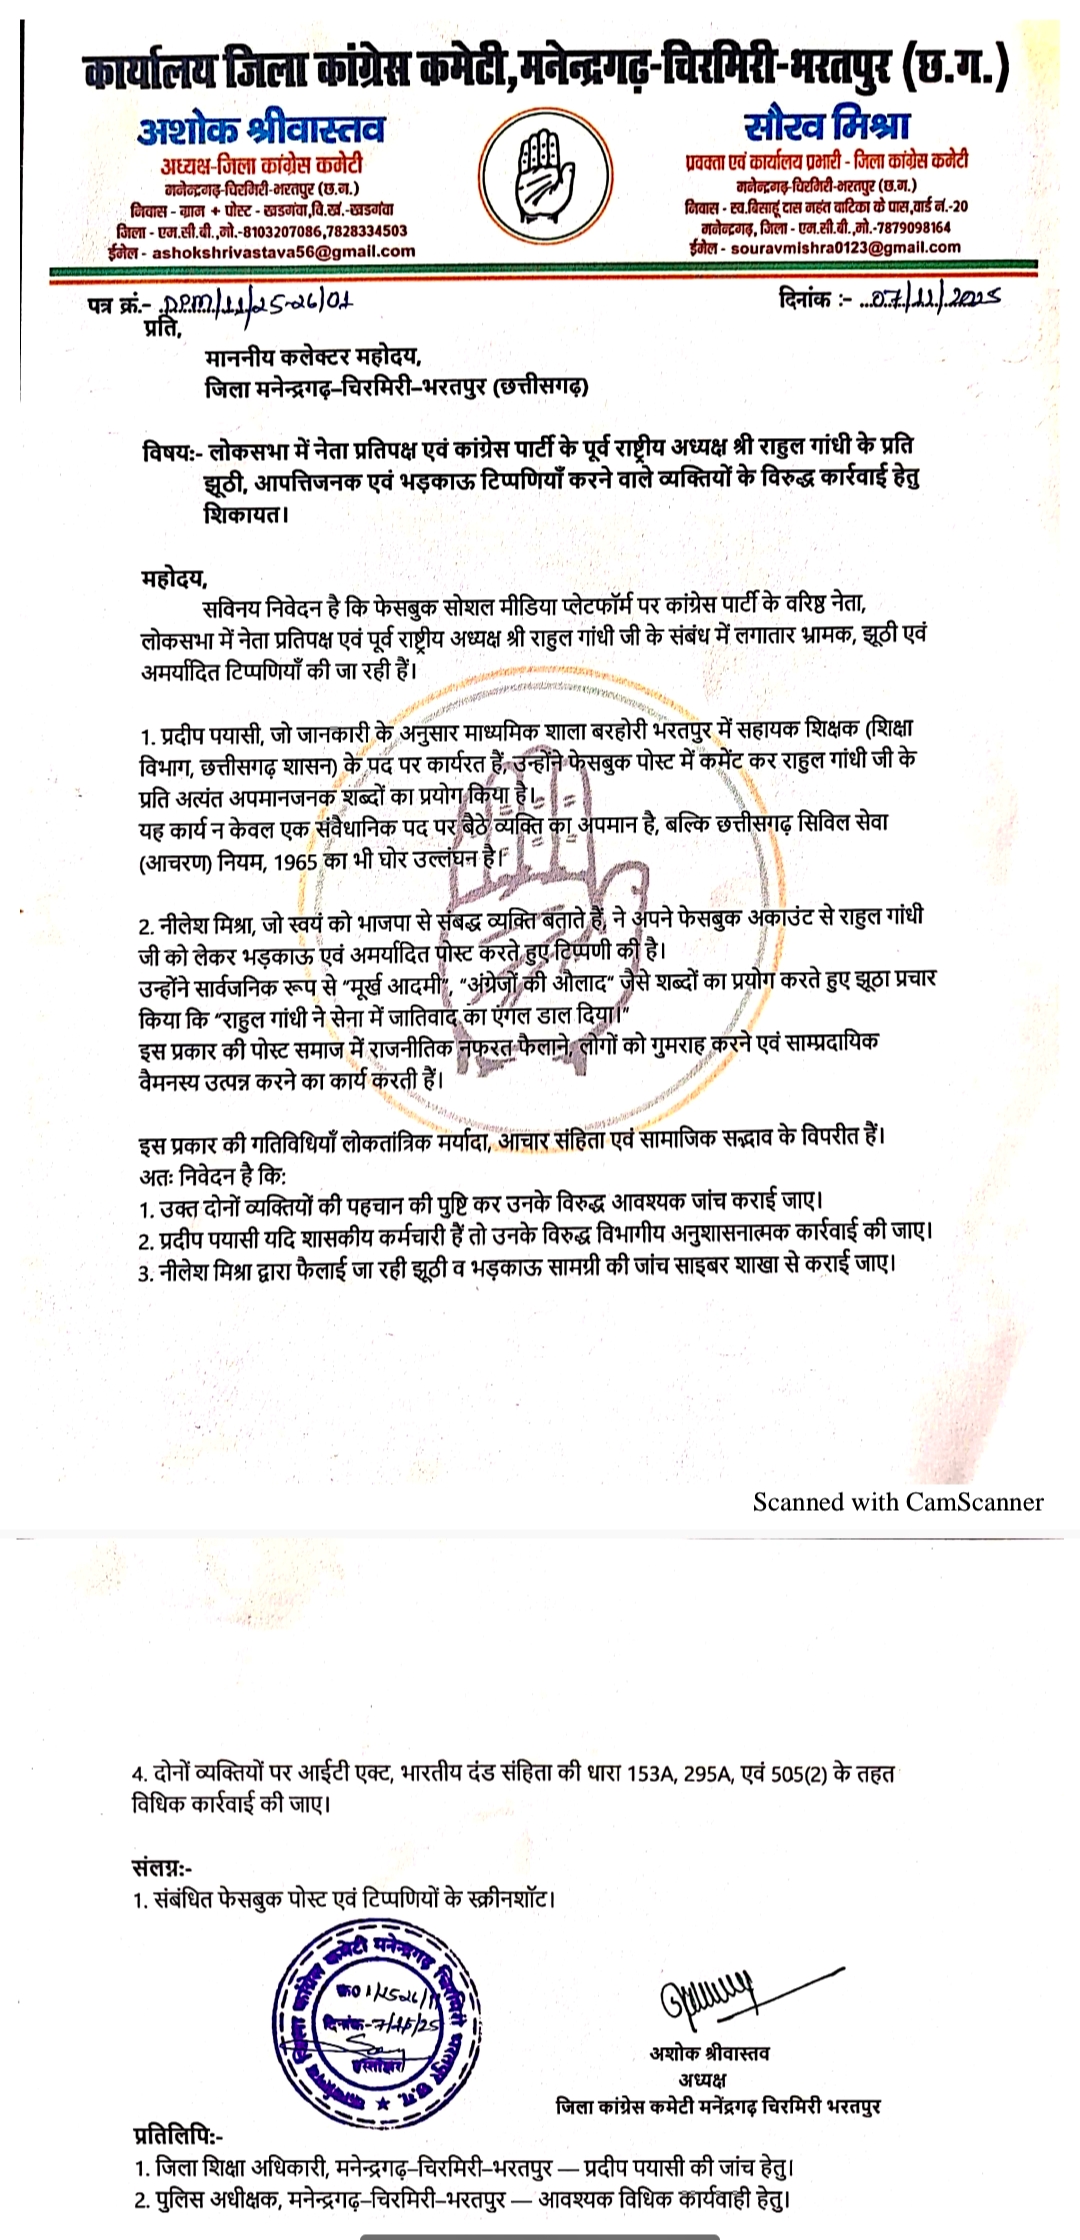 कार्यालय जिला कांग्रेस कमेटी,मनेन्द्रगढ़-चिरमिरी-भरतपुर (छ.ग.)
अशोक श्रीवास्तव
अध्यक्ष-जिला कांग्रेस कमेटी
मनेन्द्रगढ़-चिरमिरी-भरतपुर (छ.ग.)
निवास - ग्राम + पोस्ट - खडगंवा,वि.खं.-खडगंवा
जिला - एम.सी.बी.,मो.-8103207086,7828334503
ईमेल - ashokshrivastava56@gmail.com
सौरव मिश्रा
प्रवक्ता एवं कार्यालय प्रभारी - जिला कांग्रेस कमेटी
मनेन्द्रगढ़-चिरमिरी-भरतपुर (छ.ग.)
निवास - स्व.बिसाहू दास महंत वाटिका के पास,वार्ड नं.-20
मनेन्द्रगढ़, जिला - एम.सी.बी.,मो.-7879098164
ईमेल - souravmishra0123@gmail.com
पत्र क्रं.- DPM/11/25-26/01
दिनांक :- 07/11/2025
प्रति,
माननीय कलेक्टर महोदय,
जिला मनेन्द्रगढ़–चिरमिरी–भरतपुर (छत्तीसगढ़)
विषय:- लोकसभा में नेता प्रतिपक्ष एवं कांग्रेस पार्टी के पूर्व राष्ट्रीय अध्यक्ष श्री राहुल गांधी के प्रति
झूठी, आपत्तिजनक एवं भड़काऊ टिप्पणियाँ करने वाले व्यक्तियों के विरुद्ध कार्रवाई हेतु
शिकायत।
महोदय,
सविनय निवेदन है कि फेसबुक सोशल मीडिया प्लेटफॉर्म पर कांग्रेस पार्टी के वरिष्ठ नेता,
लोकसभा में नेता प्रतिपक्ष एवं पूर्व राष्ट्रीय अध्यक्ष श्री राहुल गांधी जी के संबंध में लगातार भ्रामक, झूठी एवं
अमर्यादित टिप्पणियाँ की जा रही हैं।
1. प्रदीप पयासी, जो जानकारी के अनुसार माध्यमिक शाला बरहोरी भरतपुर में सहायक शिक्षक (शिक्षा
विभाग, छत्तीसगढ़ शासन) के पद पर कार्यरत हैं, उन्होंने फेसबुक पोस्ट में कमेंट कर राहुल गांधी जी के
प्रति अत्यंत अपमानजनक शब्दों का प्रयोग किया है।
यह कार्य न केवल एक संवैधानिक पद पर बैठे व्यक्ति का अपमान है, बल्कि छत्तीसगढ़ सिविल सेवा
(आचरण) नियम, 1965 का भी घोर उल्लंघन है।
2. नीलेश मिश्रा, जो स्वयं को भाजपा से संबद्ध व्यक्ति बताते हैं, ने अपने फेसबुक अकाउंट से राहुल गांधी
जी को लेकर भड़काऊ एवं अमर्यादित पोस्ट करते हुए टिप्पणी की है।
उन्होंने सार्वजनिक रूप से “मूर्ख आदमी”, “अंग्रेजों की औलाद” जैसे शब्दों का प्रयोग करते हुए झूठा प्रचार
किया कि “राहुल गांधी ने सेना में जातिवाद का एंगल डाल दिया।”
इस प्रकार की पोस्ट समाज में राजनीतिक नफरत फैलाने, लोगों को गुमराह करने एवं साम्प्रदायिक
वैमनस्य उत्पन्न करने का कार्य करती हैं।
इस प्रकार की गतिविधियाँ लोकतांत्रिक मर्यादा, आचार संहिता एवं सामाजिक सद्भाव के विपरीत हैं।
अतः निवेदन है कि:
1. उक्त दोनों व्यक्तियों की पहचान की पुष्टि कर उनके विरुद्ध आवश्यक जांच कराई जाए।
2. प्रदीप पयासी यदि शासकीय कर्मचारी हैं तो उनके विरुद्ध विभागीय अनुशासनात्मक कार्रवाई की जाए।
3. नीलेश मिश्रा द्वारा फैलाई जा रही झूठी व भड़काऊ सामग्री की जांच साइबर शाखा से कराई जाए।
Scanned with CamScanner
4. दोनों व्यक्तियों पर आईटी एक्ट, भारतीय दंड संहिता की धारा 153A, 295A, एवं 505(2) के तहत
विधिक कार्रवाई की जाए।
संलग्न:-
1. संबंधित फेसबुक पोस्ट एवं टिप्पणियों के स्क्रीनशॉट।
कार्यालय जिला कांग्रेस कमेटी मनेन्द्रगढ़ चिरमिरी भरतपुर छ.ग.
दिनांक-
हस्ताक्षर
अशोक श्रीवास्तव
अध्यक्ष
जिला कांग्रेस कमेटी मनेंद्रगढ़ चिरमिरी भरतपुर
प्रतिलिपि:-
1. जिला शिक्षा अधिकारी, मनेन्द्रगढ़–चिरमिरी–भरतपुर — प्रदीप पयासी की जांच हेतु।
2. पुलिस अधीक्षक, मनेन्द्रगढ़–चिरमिरी–भरतपुर — आवश्यक विधिक कार्यवाही हेतु।